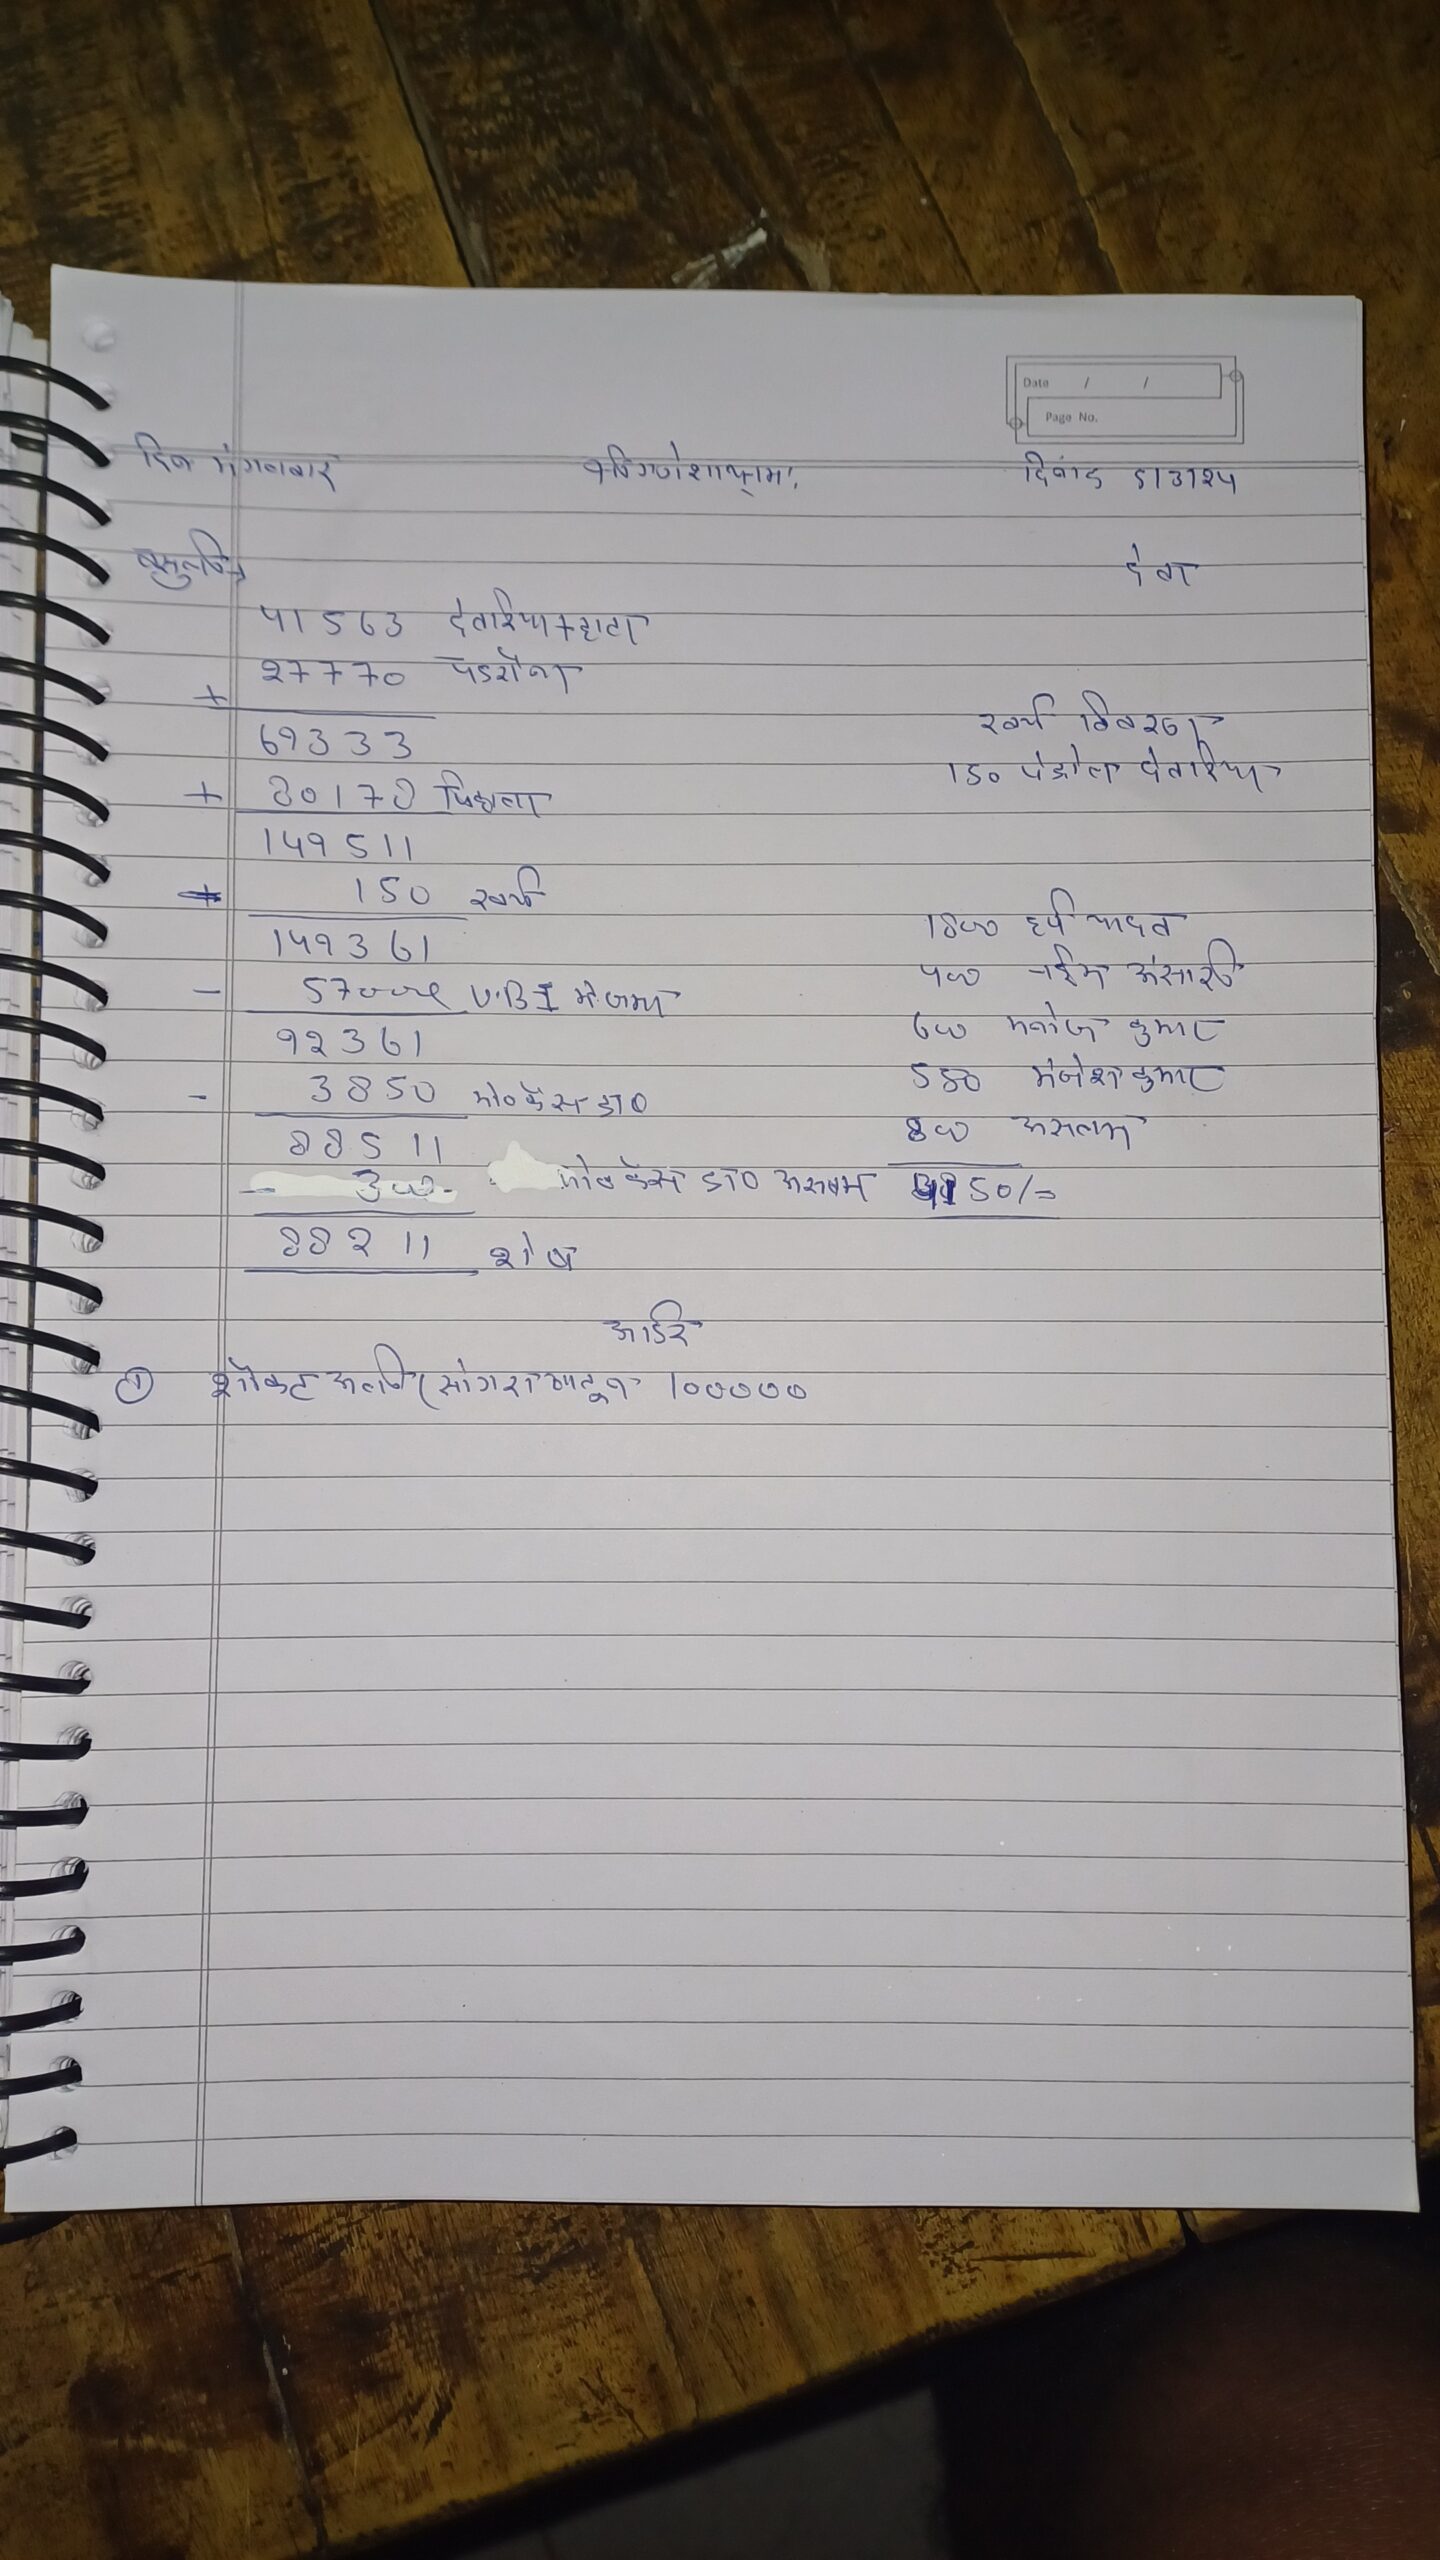 Date / /
Page No.
दिन मंगलवार श्री गणेशाय नमः दिनांक 5/3/24
वसूली देवा
41563 देवरिया + हाटा
27770 पडरौना
+
69333 खर्च विवरण
+ 80178 पिछला 150 पेट्रोल देवरिया
149511
150 खर्च
149361 1800 हर्ष यादव
- 57000 U.B.I में जमा 400 नईम अंसारी
92361 600 मनोज कुमार
- 3850 मो0 कैस डा0 550 मंजेश कुमार
88511 800 असलम
- 300 मो0 कैस डा0 असलम 4150/=
88211 शेष
आर्डर
① शौकत अली 100000